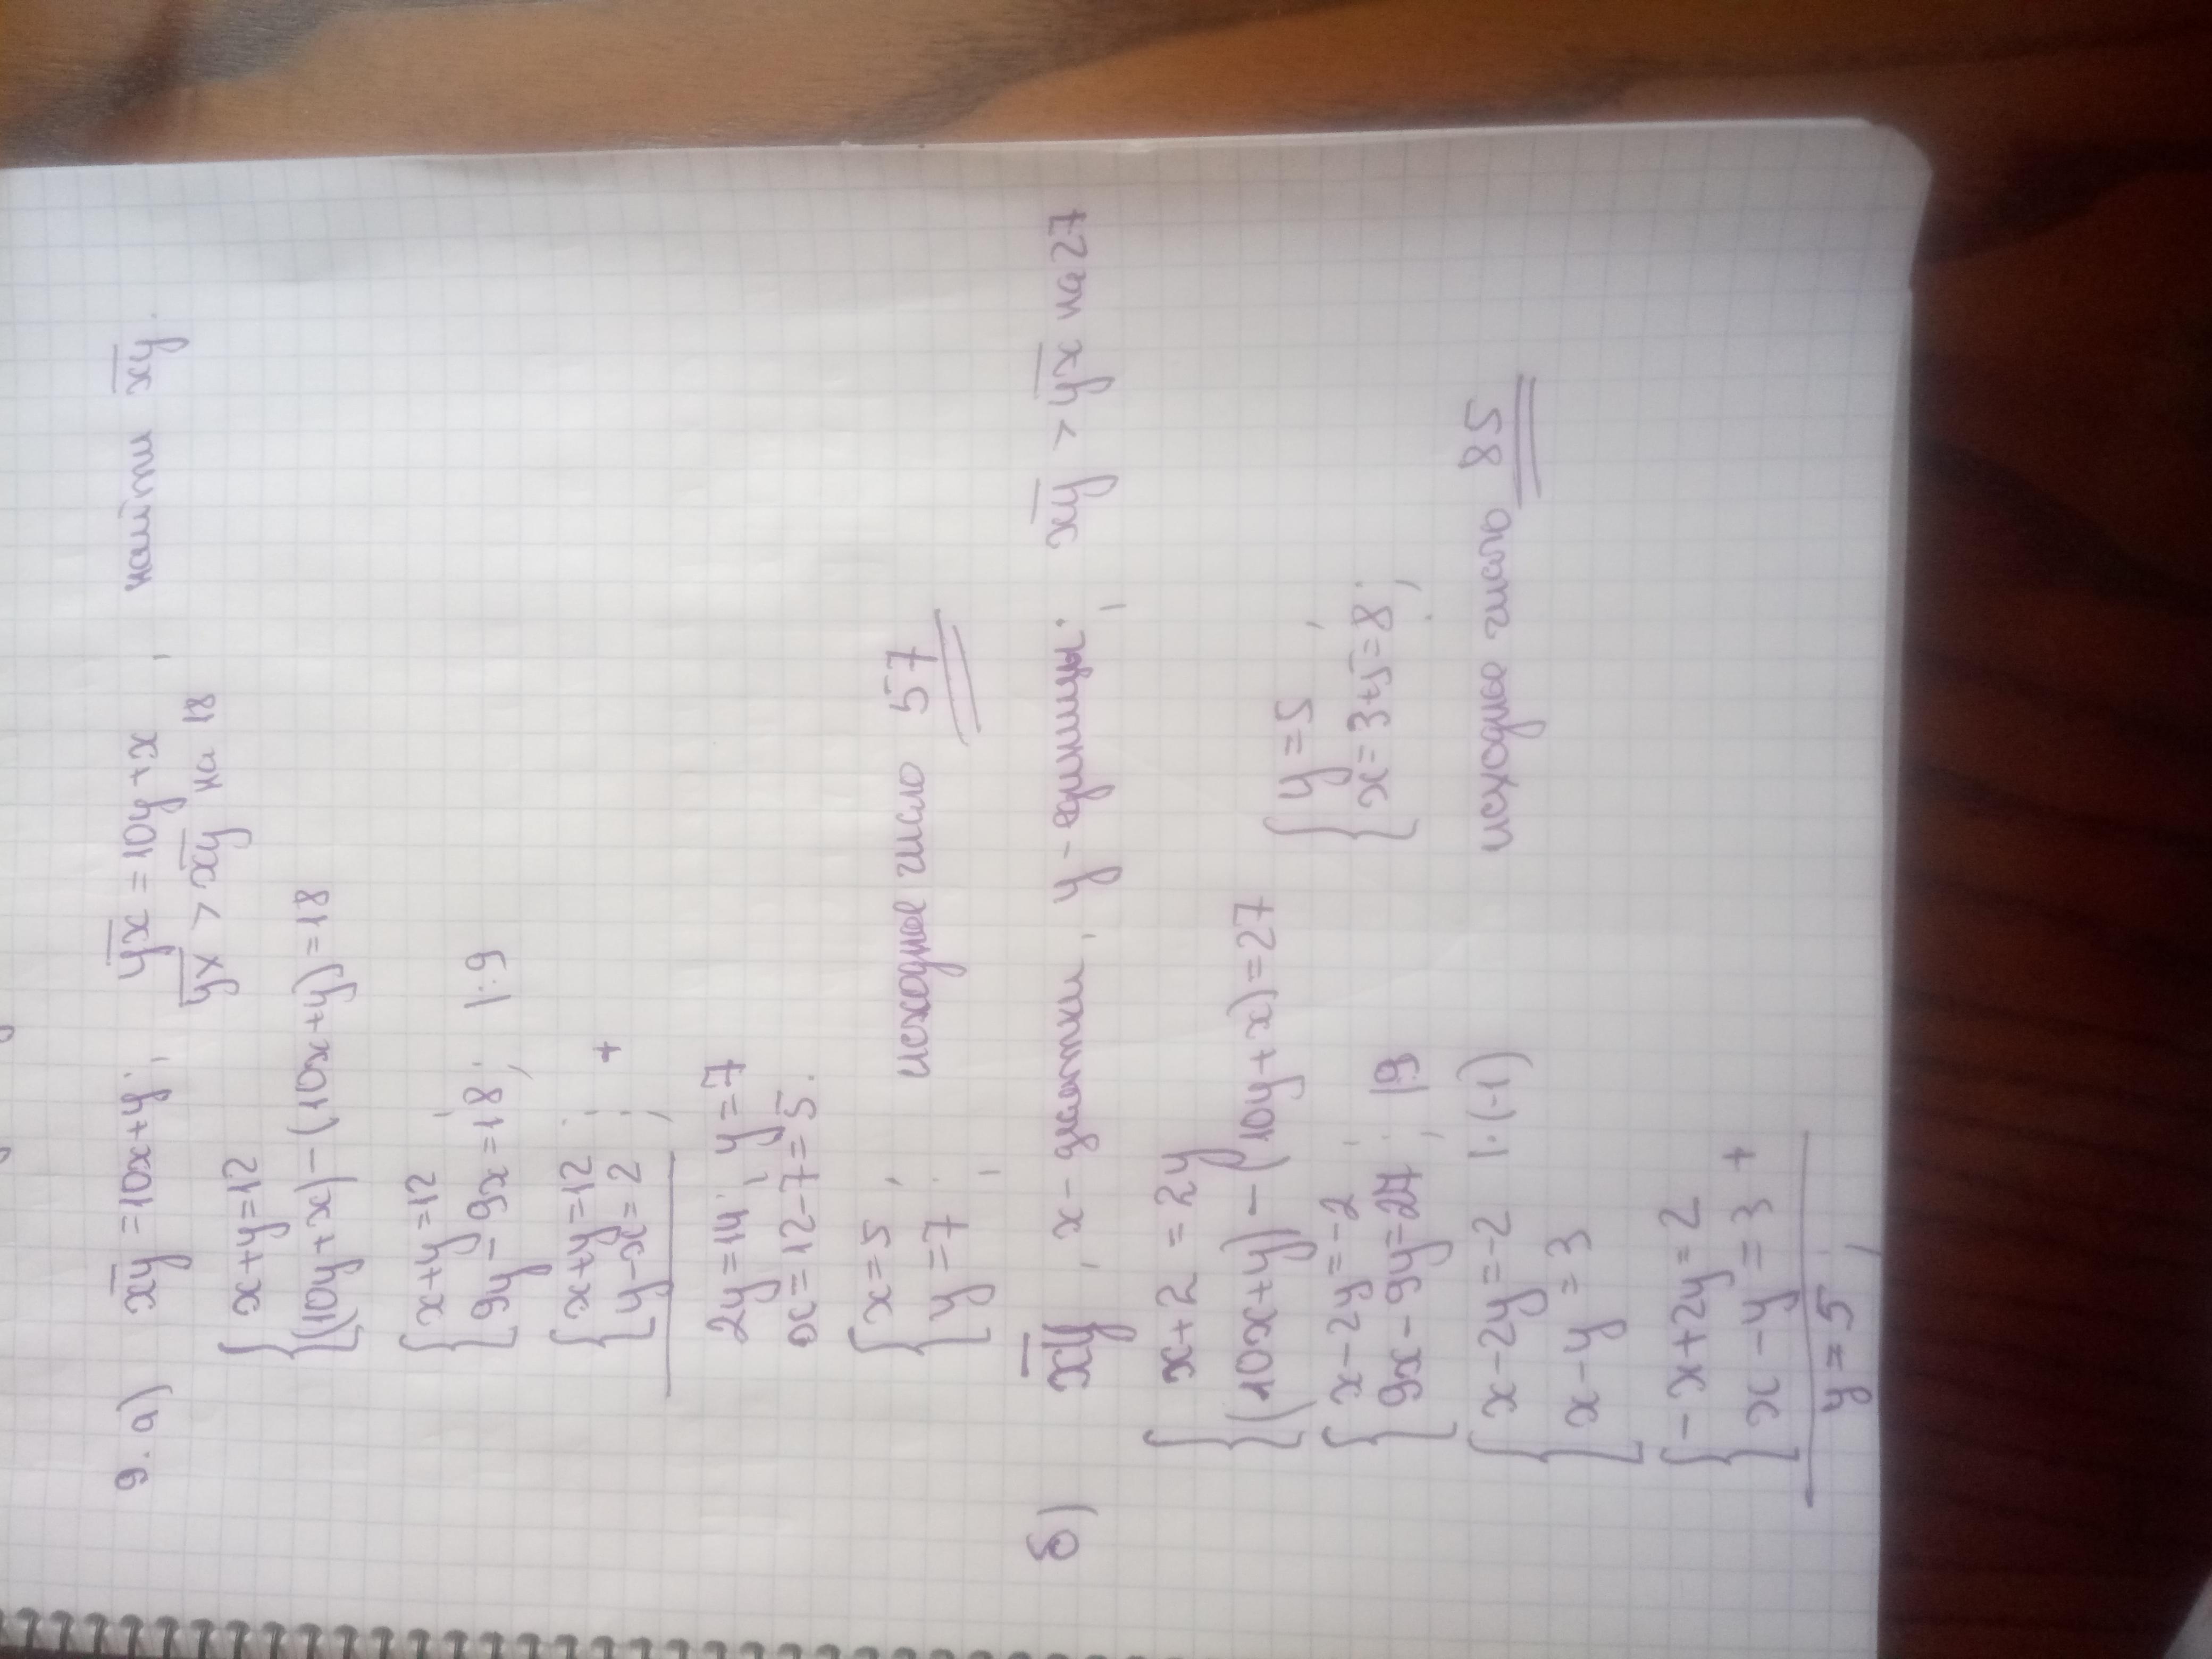 9. а) xy = 10x+y; yx = 10y+x, найти xy.
yx > xy на 18
{ x+y=12
{ (10y+x) - (10x+y) = 18
{ x+y=12;
{ 9y-9x=18; |:9
{ x+y=12;
{ y-x=2; +
2y=14; y=7
x=12-7=5.
{ x=5;
{ y=7; исходное число 57
б) xy, x - десятки, y - единицы; xy > yx на 27
{ x+2=2y
{ (10x+y) - (10y+x) = 27
{ x-2y=-2;
{ 9x-9y=27; |:9
{ x-2y=-2 |·(-1)
{ x-y=3
{ -x+2y=2
{ x-y=3 +
y=5;
{ y=5;
{ x=3+5=8;
исходное число 85